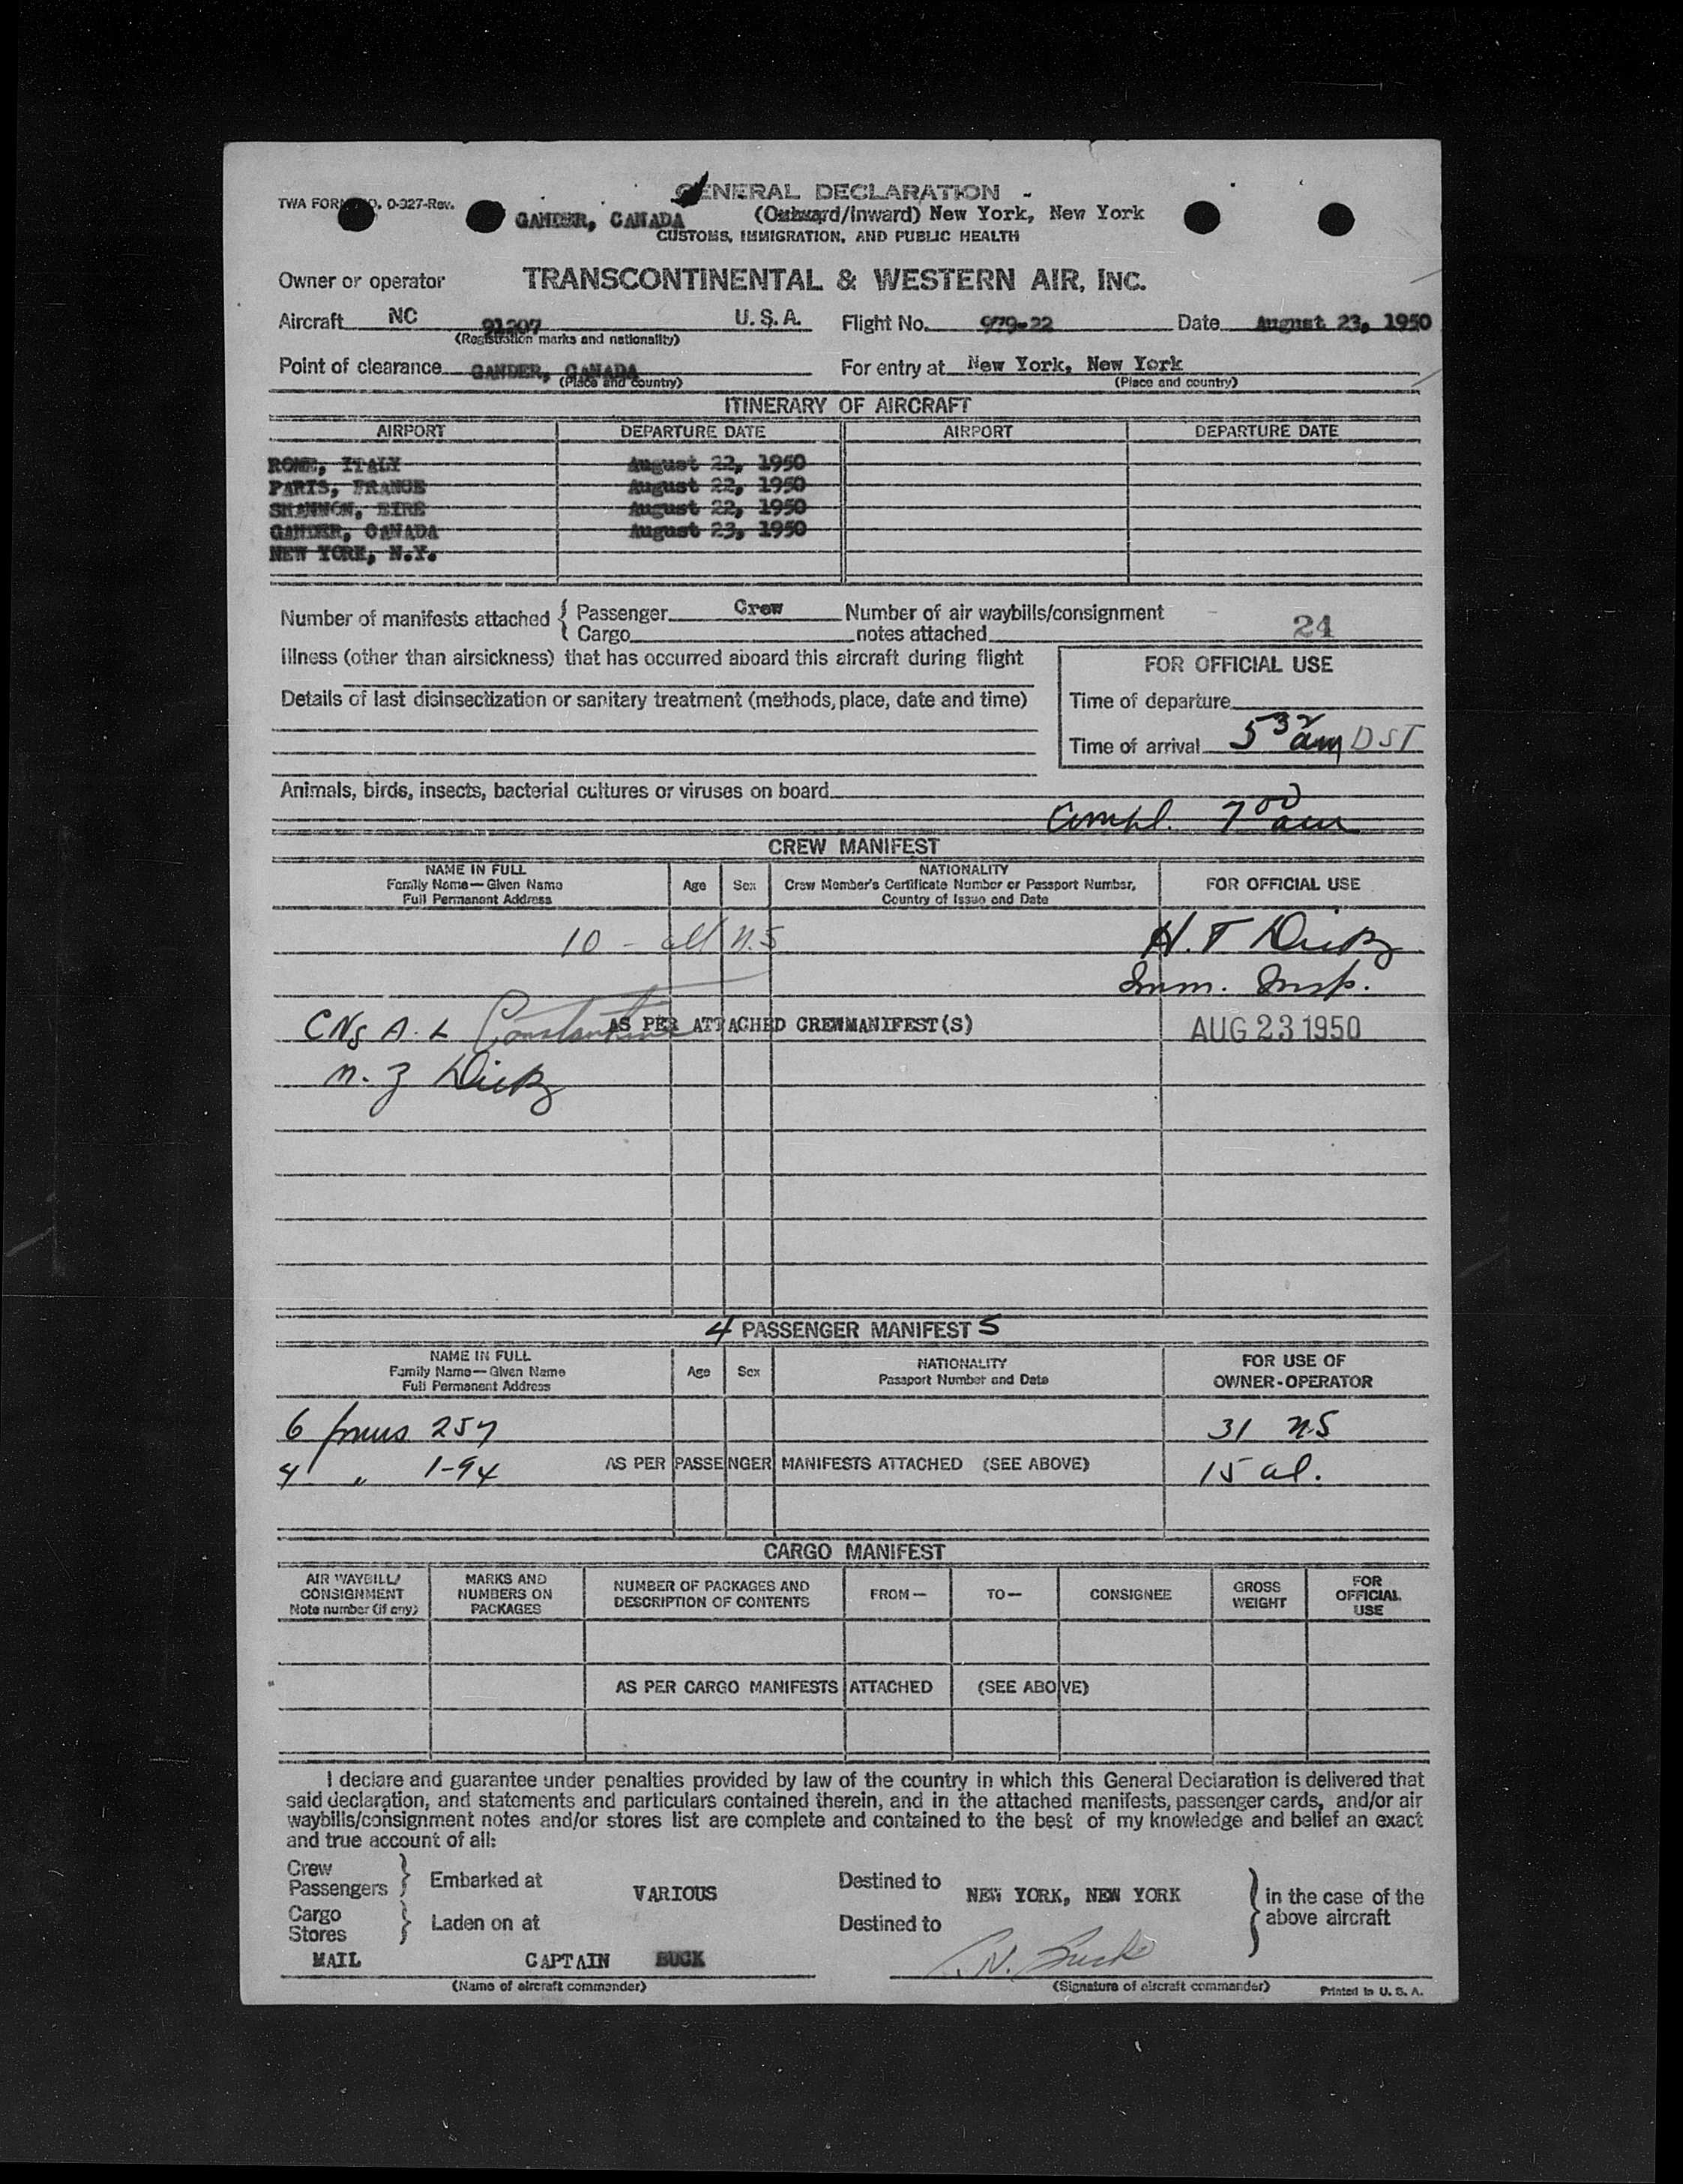 GENERAL DECLARATION
TWA FORM NO. 0-327-Rev.
GANDER, CANADA (Outward/Inward) New York, New York
CUSTOMS, IMMIGRATION, AND PUBLIC HEALTH
Owner or operator TRANSCONTINENTAL & WESTERN AIR, INC.
Aircraft NC 91207 U.S.A. Flight No. 979-22 Date August 23, 1950
(Registration marks and nationality)
Point of clearance GANDER, CANADA For entry at New York, New York
(Place and country) (Place and country)
ITINERARY OF AIRCRAFT
AIRPORT DEPARTURE DATE AIRPORT DEPARTURE DATE
ROME, ITALY August 22, 1950
PARIS, FRANCE August 22, 1950
SHANNON, EIRE August 22, 1950
GANDER, CANADA August 23, 1950
NEW YORK, N.Y.
Number of manifests attached { Passenger Crew Number of air waybills/consignment
Cargo notes attached 24
Illness (other than airsickness) that has occurred aboard this aircraft during flight
FOR OFFICIAL USE
Details of last disinsectization or sanitary treatment (methods, place, date and time)
Time of departure
Time of arrival 5 32 am DST
Animals, birds, insects, bacterial cultures or viruses on board
Compl. 7 00 am
CREW MANIFEST
NAME IN FULL
Family Name—Given Name
Full Permanent Address
Age Sex
NATIONALITY
Crew Member's Certificate Number or Passport Number,
Country of Issue and Date
FOR OFFICIAL USE
10 - all N.S H. T
Imm. Insp.
A. L Constantine AS PER ATTACHED CREWMANIFEST(S) AUG 23 1950
4 PASSENGER MANIFEST S
NAME IN FULL
Family Name—Given Name
Full Permanent Address
Age Sex
NATIONALITY
Passport Number and Date
FOR USE OF
OWNER-OPERATOR
6 forms 257 31 N.S
4 " 1-94 AS PER PASSENGER MANIFESTS ATTACHED (SEE ABOVE) 15 al.
CARGO MANIFEST
AIR WAYBILL/
CONSIGNMENT
Note number (if any)
MARKS AND
NUMBERS ON
PACKAGES
NUMBER OF PACKAGES AND
DESCRIPTION OF CONTENTS
FROM— TO— CONSIGNEE
GROSS
WEIGHT
FOR
OFFICIAL
USE
AS PER CARGO MANIFESTS ATTACHED (SEE ABOVE)
I declare and guarantee under penalties provided by law of the country in which this General Declaration is delivered that
said declaration, and statements and particulars contained therein, and in the attached manifests, passenger cards, and/or air
waybills/consignment notes and/or stores list are complete and contained to the best of my knowledge and belief an exact
and true account of all:
Crew
Passengers } Embarked at VARIOUS Destined to NEW YORK, NEW YORK } in the case of the
above aircraft
Cargo
Stores } Laden on at Destined to
MAIL CAPTAIN BUCK N. Buck
(Name of aircraft commander) (Signature of aircraft commander) Printed in U. S. A.